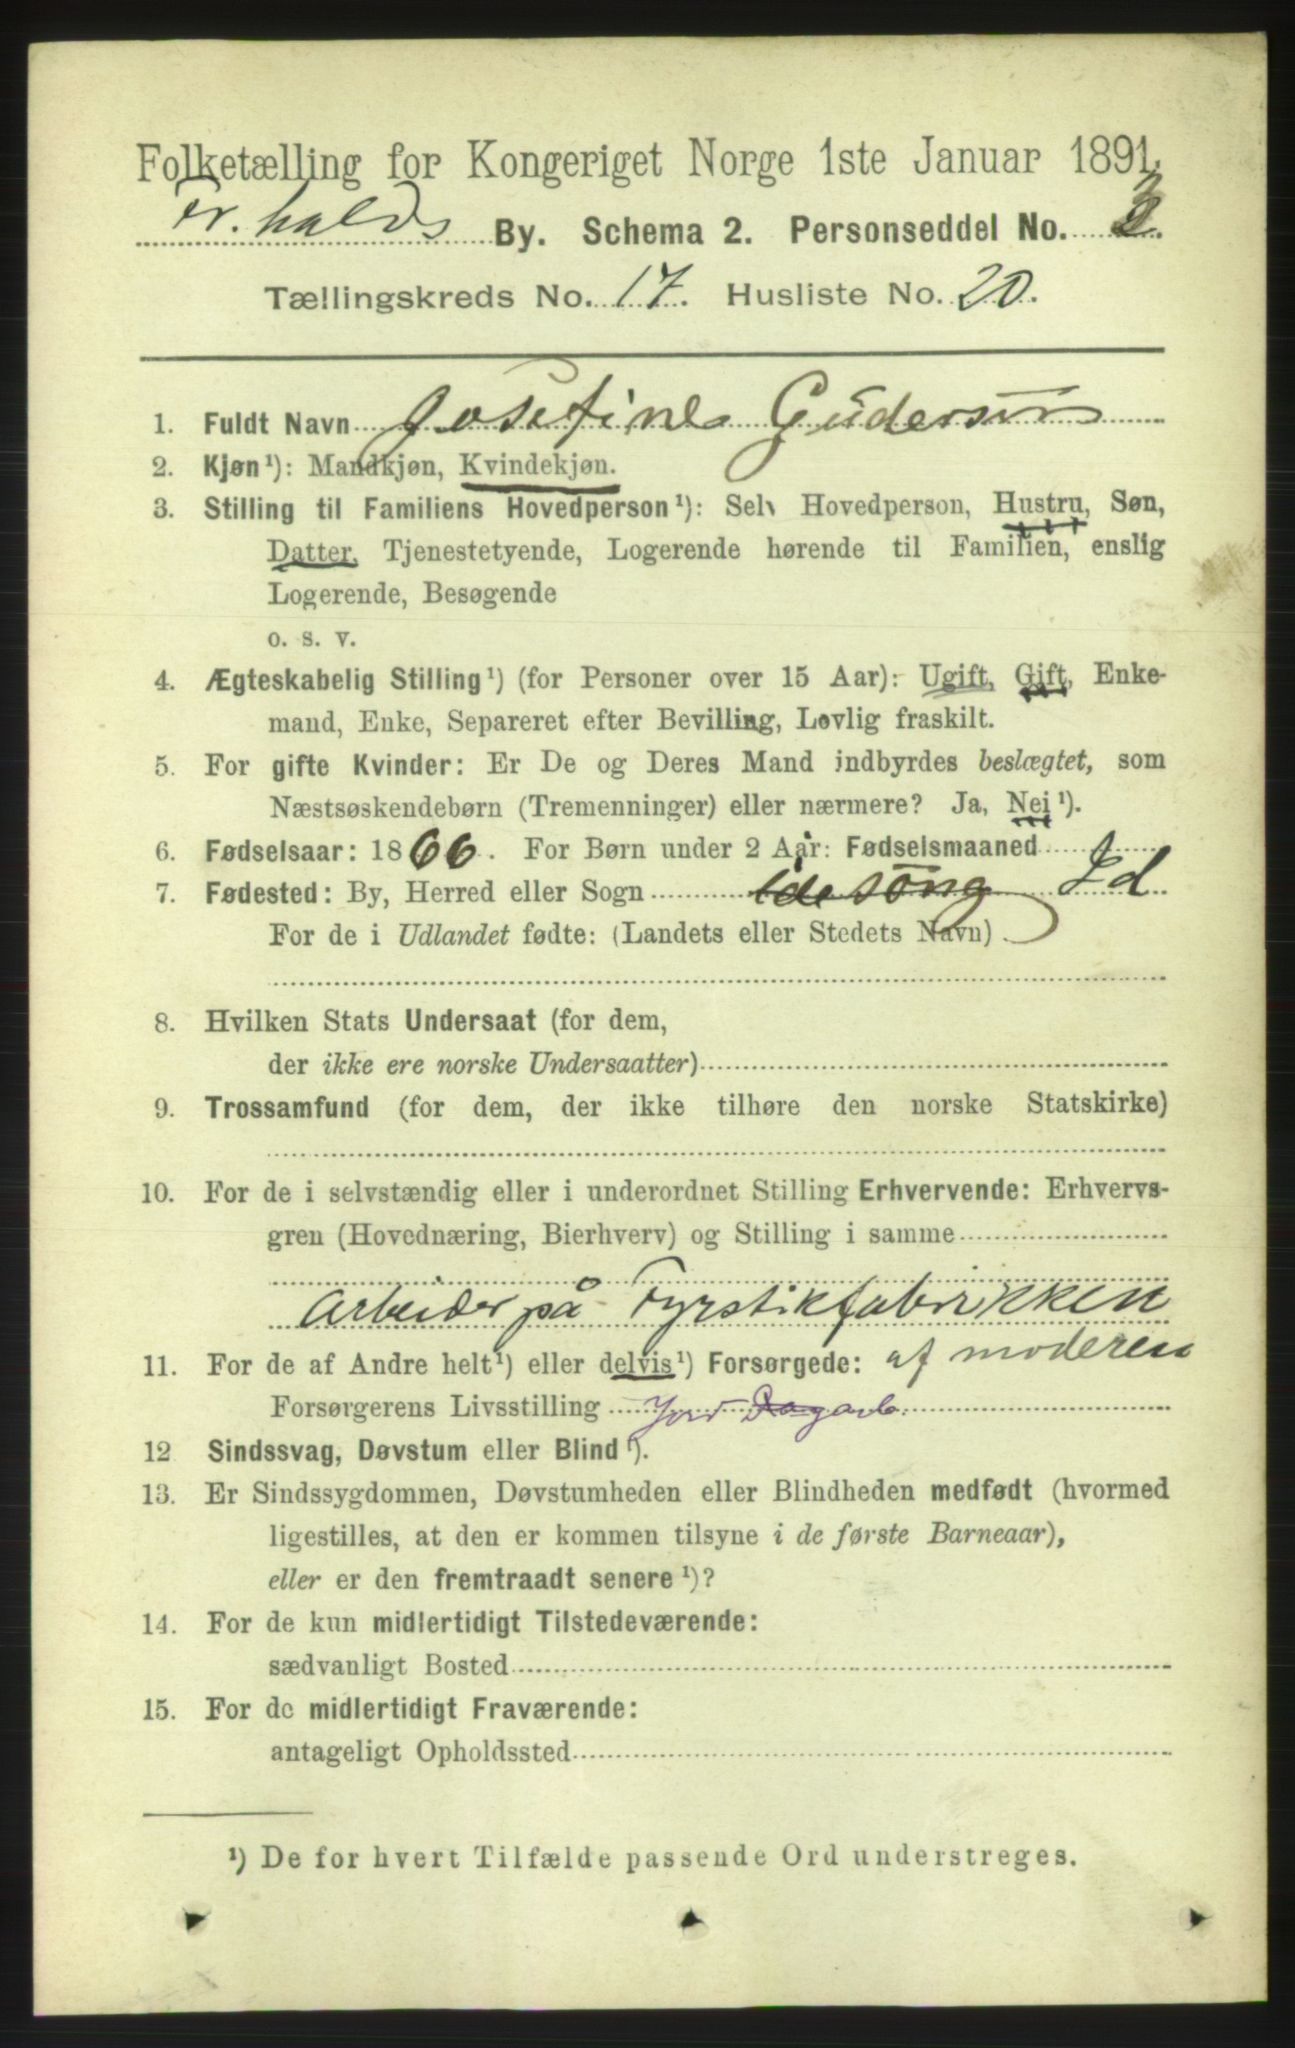 Folketælling for Kongeriget Norge 1ste Januar 1891.
Fr.halds By. Schema 2. Personseddel No. 3.
Tællingskreds No. 17. Husliste No. 20.
1. Fuldt Navn Josefine Gudersen
2. Kjøn¹): Mandkjøn, Kvindekjøn.
3. Stilling til Familiens Hovedperson¹): Selv Hovedperson, Hustru, Søn,
Datter, Tjenestetyende, Logerende hørende til Familien, enslig
Logerende, Besøgende
o. s. v.
4. Ægteskabelig Stilling¹) (for Personer over 15 Aar): Ugift, Gift, Enke-
mand, Enke, Separeret efter Bevilling, Lovlig fraskilt.
5. For gifte Kvinder: Er De og Deres Mand indbyrdes beslægtet, som
Næstsøskendebørn (Tremenninger) eller nærmere? Ja, Nei¹).
6. Fødselsaar: 1866. For Børn under 2 Aar: Fødselsmaaned
7. Fødested: By, Herred eller Sogn Idesong Id
For de i Udlandet fødte: (Landets eller Stedets Navn)
8. Hvilken Stats Undersaat (for dem,
der ikke ere norske Undersaatter)
9. Trossamfund (for dem, der ikke tilhøre den norske Statskirke)
10. For de i selvstændig eller i underordnet Stilling Erhvervende: Erhvervs-
gren (Hovednæring, Bierhverv) og Stilling i samme
Arbeider på Fyrstikfabrikken
11. For de af Andre helt¹) eller delvis¹) Forsørgede: af moderen
Forsørgerens Livsstilling Jord Dagarb.
12 Sindssvag, Døvstum eller Blind¹).
13. Er Sindssygdommen, Døvstumheden eller Blindheden medfødt (hvormed
ligestilles, at den er kommen tilsyne i de første Barneaar),
eller er den fremtraadt senere¹)?
14. For de kun midlertidigt Tilstedeværende:
sædvanligt Bosted
15. For de midlertidigt Fraværende:
antageligt Opholdssted
¹) De for hvert Tilfælde passende Ord understreges.